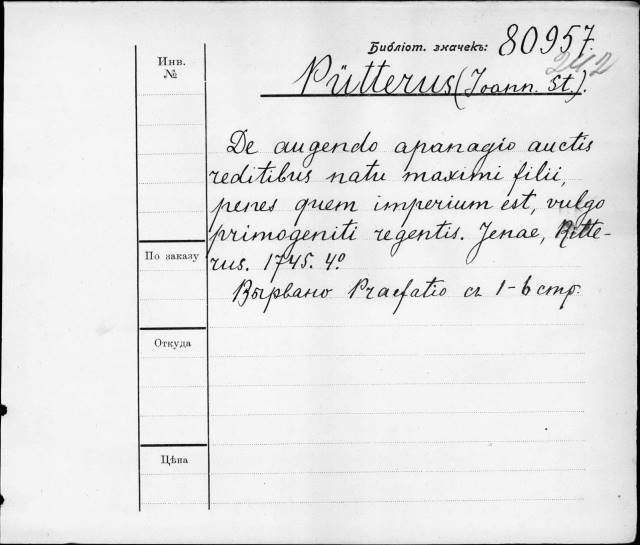 Библіот. значекъ: 80957.
242
Инв.
№
Pütterus (Joann. St.).
De augendo apanagio auctis
reditibus natu maximi filii,
penes quem imperium est, vulgo
primogeniti regentis. Jenae, Ritte-
rus. 1745. 4º
Вырвано Praefatio съ 1-6 стр.
По заказу
Откуда
Цѣна